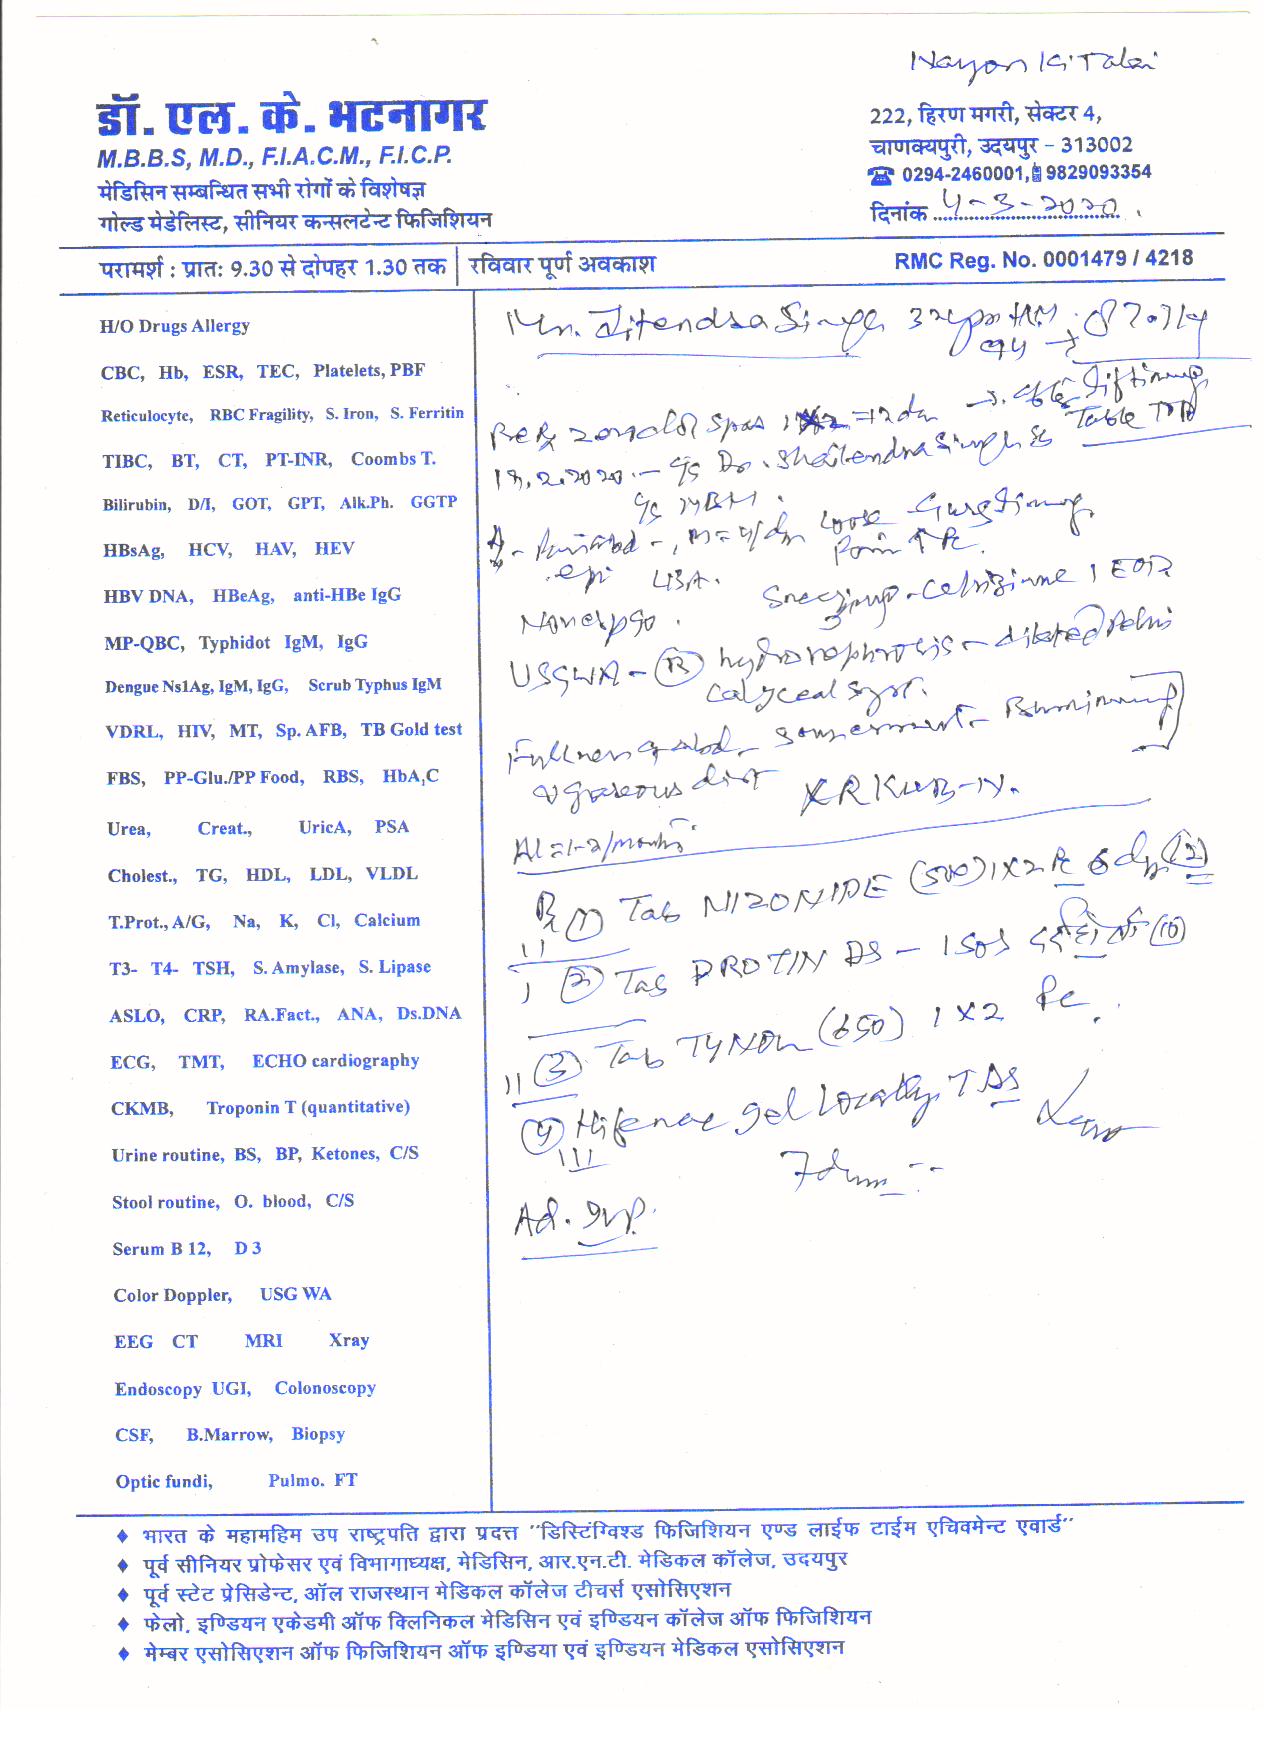 Nayon Ki Talai
डॉ. एल. के. भटनागर
M.B.B.S, M.D., F.I.A.C.M., F.I.C.P.
मेडिसिन सम्बन्धित सभी रोगों के विशेषज्ञ
गोल्ड मेडेलिस्ट, सीनियर कन्सलटेन्ट फिजिशियन
222, हिरण मगरी, सेक्टर 4,
चाणक्यपुरी, उदयपुर - 313002
0294-2460001, 9829093354
दिनांक 4-3-2020
परामर्श : प्रातः 9.30 से दोपहर 1.30 तक | रविवार पूर्ण अवकाश
RMC Reg. No. 0001479 / 4218
H/O Drugs Allergy
CBC, Hb, ESR, TEC, Platelets, PBF
Reticulocyte, RBC Fragility, S. Iron, S. Ferritin
TIBC, BT, CT, PT-INR, Coombs T.
Bilirubin, D/I, GOT, GPT, Alk.Ph. GGTP
HBsAg, HCV, HAV, HEV
HBV DNA, HBeAg, anti-HBe IgG
MP-QBC, Typhidot IgM, IgG
Dengue Ns1Ag, IgM, IgG, Scrub Typhus IgM
VDRL, HIV, MT, Sp. AFB, TB Gold test
FBS, PP-Glu./PP Food, RBS, HbA1C
Urea, Creat., UricA, PSA
Cholest., TG, HDL, LDL, VLDL
T.Prot., A/G, Na, K, Cl, Calcium
T3- T4- TSH, S. Amylase, S. Lipase
ASLO, CRP, RA.Fact., ANA, Ds.DNA
ECG, TMT, ECHO cardiography
CKMB, Troponin T (quantitative)
Urine routine, BS, BP, Ketones, C/S
Stool routine, O. blood, C/S
Serum B 12, D 3
Color Doppler, USG WA
EEG CT MRI Xray
Endoscopy UGI, Colonoscopy
CSF, B.Marrow, Biopsy
Optic fundi, Pulmo. FT
Mr. Jitendra Singh 32
Spas
Dr. Shailendra Singh
loose
Pain
Sneezing - Cetrizine 1
USGWA - (R) hydronephrosis - dilated Pelvi
Calyceal syst.
gaseous dist XRKUB-N.
Al = 1-2/month
Rx (1) Tab NIZONIDE (500) 1x2 Pc 6 (12)
(2) Tab PROTIN DS - 1 SOS (10)
(3) Tab TYNOL (650) 1 x 2 Pc.
(4) Hifenac gel locally TDS
Ad.
♦ भारत के महामहिम उप राष्ट्रपति द्वारा प्रदत्त "डिस्टिंग्विश्ड फिजिशियन एण्ड लाईफ टाईम एचिवमेन्ट एवार्ड"
♦ पूर्व सीनियर प्रोफेसर एवं विभागाध्यक्ष, मेडिसिन, आर.एन.टी. मेडिकल कॉलेज, उदयपुर
♦ पूर्व स्टेट प्रेसिडेन्ट, ऑल राजस्थान मेडिकल कॉलेज टीचर्स एसोसिएशन
♦ फेलो, इण्डियन एकेडमी ऑफ क्लिनिकल मेडिसिन एवं इण्डियन कॉलेज ऑफ फिजिशियन
♦ मेम्बर एसोसिएशन ऑफ फिजिशियन ऑफ इण्डिया एवं इण्डियन मेडिकल एसोसिएशन